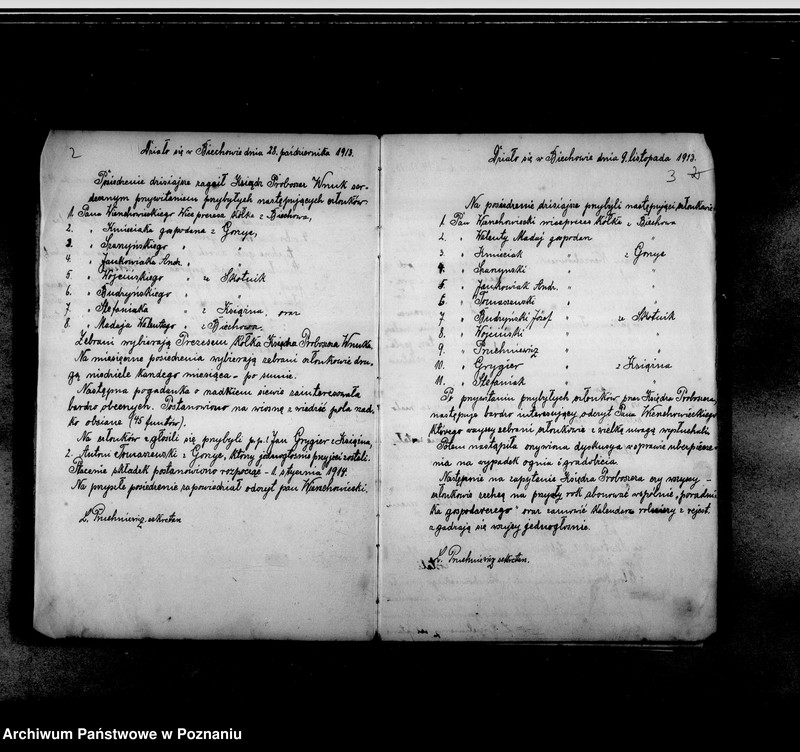 2
Działo się w Biechowie dnia 28. października 1913.
Posiedzenie dzisiejsze zagaił Ksiądz Proboszcz Wnuk ser-
decznym przywitaniem przybyłych następujących członków
1. Pana Wierzchowieckiego Wiceprezesa kółka z Biechowa,
2. " Kmieciaka gospodarza z Gorzyc,
3. " Szarzyńskiego " "
4. " Jankowiaka Andr. " "
5. " Wójcińskiego " ze Skotnik
6. " Budzyńskiego " "
7. " Stefaniaka " z Księżna, oraz
8. " Madaja Walentego " z Biechowa.
Zebrani wybierają Prezesem kółka Księdza Proboszcza Wnuka.
Na miesięczne posiedzenia wybierają zebrani członkowie dru-
gą niedzielę każdego miesiąca - po sumie.
Następna pogadanka o rzadkiem siewie zainteresowała
bardzo obecnych. Postanowiono na wiosnę zwiedzić pola rzad-
ko obsiane (45 funtów).
Na członków zgłosili się przybyli p.p. 1. Jan Grygier z Księżna,
2. Antoni Tomaszewski z Gorzyc, którzy jednogłośnie przyjęci zostali.
Płacenie składek postanowiono rozpocząć - 1. stycznia 1914.
Na przyszłe posiedzenie zapowiedział odczyt pan Wierzchowiecki.
L. Pruchniewicz sekretarz
Działo się w Biechowie dnia 9. listopada 1913.
3 2
Na posiedzenie dzisiejsze przybyli następujący członkowie
1. Pan Wierzchowiecki wiceprezes kółka z Biechowa
2. " Walenty Madaj gospodarz "
3. " Kmieciak " z Gorzyc
4. " Szarzyński " "
5. " Jankowiak Andr. " "
6. " Tomaszewski " "
7. " Budzyński Józef " ze Skotnik
8. " Wójciński " "
9. " Pruchniewicz " "
10. " Grygier " z Księżna
11. " Stefaniak " "
Po przywitaniu przybyłych członków przez Księdza Proboszcza,
następuje bardzo interesujący odczyt Pana Wierzchowieckiego
którego wszyscy zebrani członkowie z wielką uwagą wysłuchali.
Potem nastąpiła ożywiona dyskusya w sprawie ubezpiecze-
nia na wypadek ognia i gradobicia.
Następnie na zapytanie Księdza Proboszcza czy wszyscy -
członkowie zechcą na przyszły rok abonować wspólnie „poradni-
ka gospodarczego" oraz zamówić kalendarz rolniczy z rejest.
zgadzają się wszyscy jednogłośnie.
L. Pruchniewicz sekretarz.
Archiwum Państwowe w Poznaniu